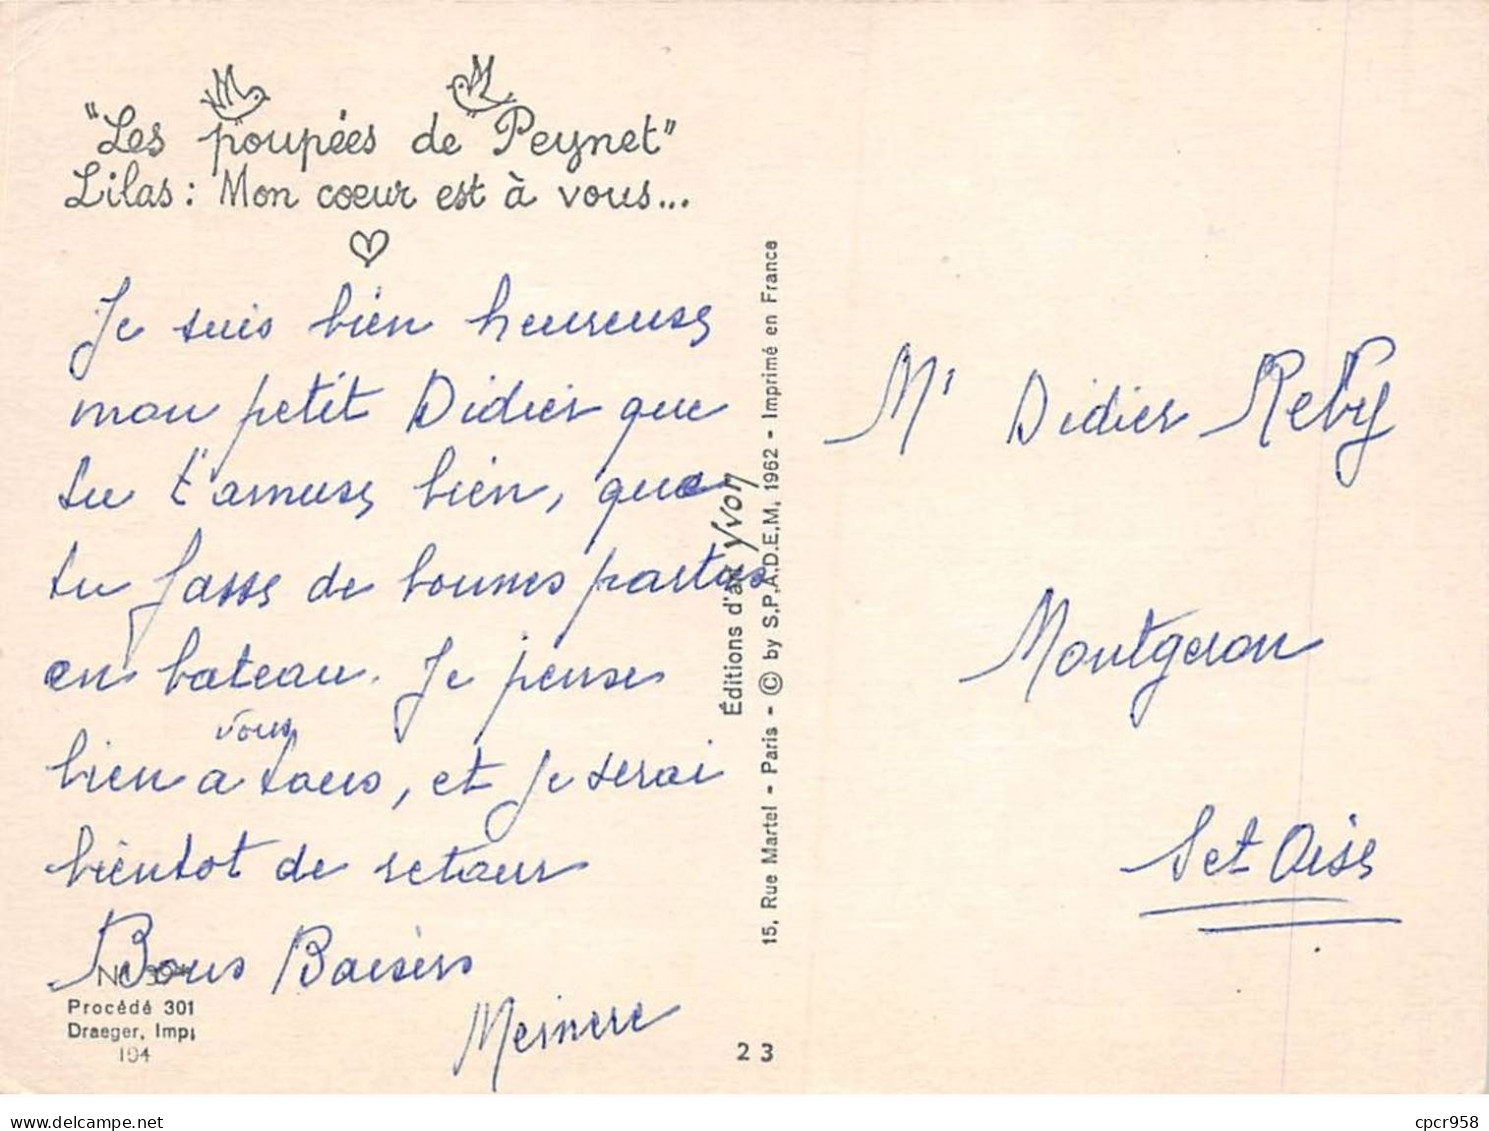 "Les poupées de Peynet"
Lilas : Mon cœur est à vous...
Je suis bien heureuse
mon petit Didier que
tu t'amuses bien, que
tu fasse de bonnes parties
en bateau. Je pense
vous
bien a tous, et je serai
bientot de retour
Bons Baisers
Procédé 301
Draeger, Imp.
104
Éditions d'art Yvon
15, Rue Martel - Paris - © by S.P.A.D.E.M. 1962 - Imprimé en France
23
Mr Didier
Montgeron
Set Oise
cpcr958